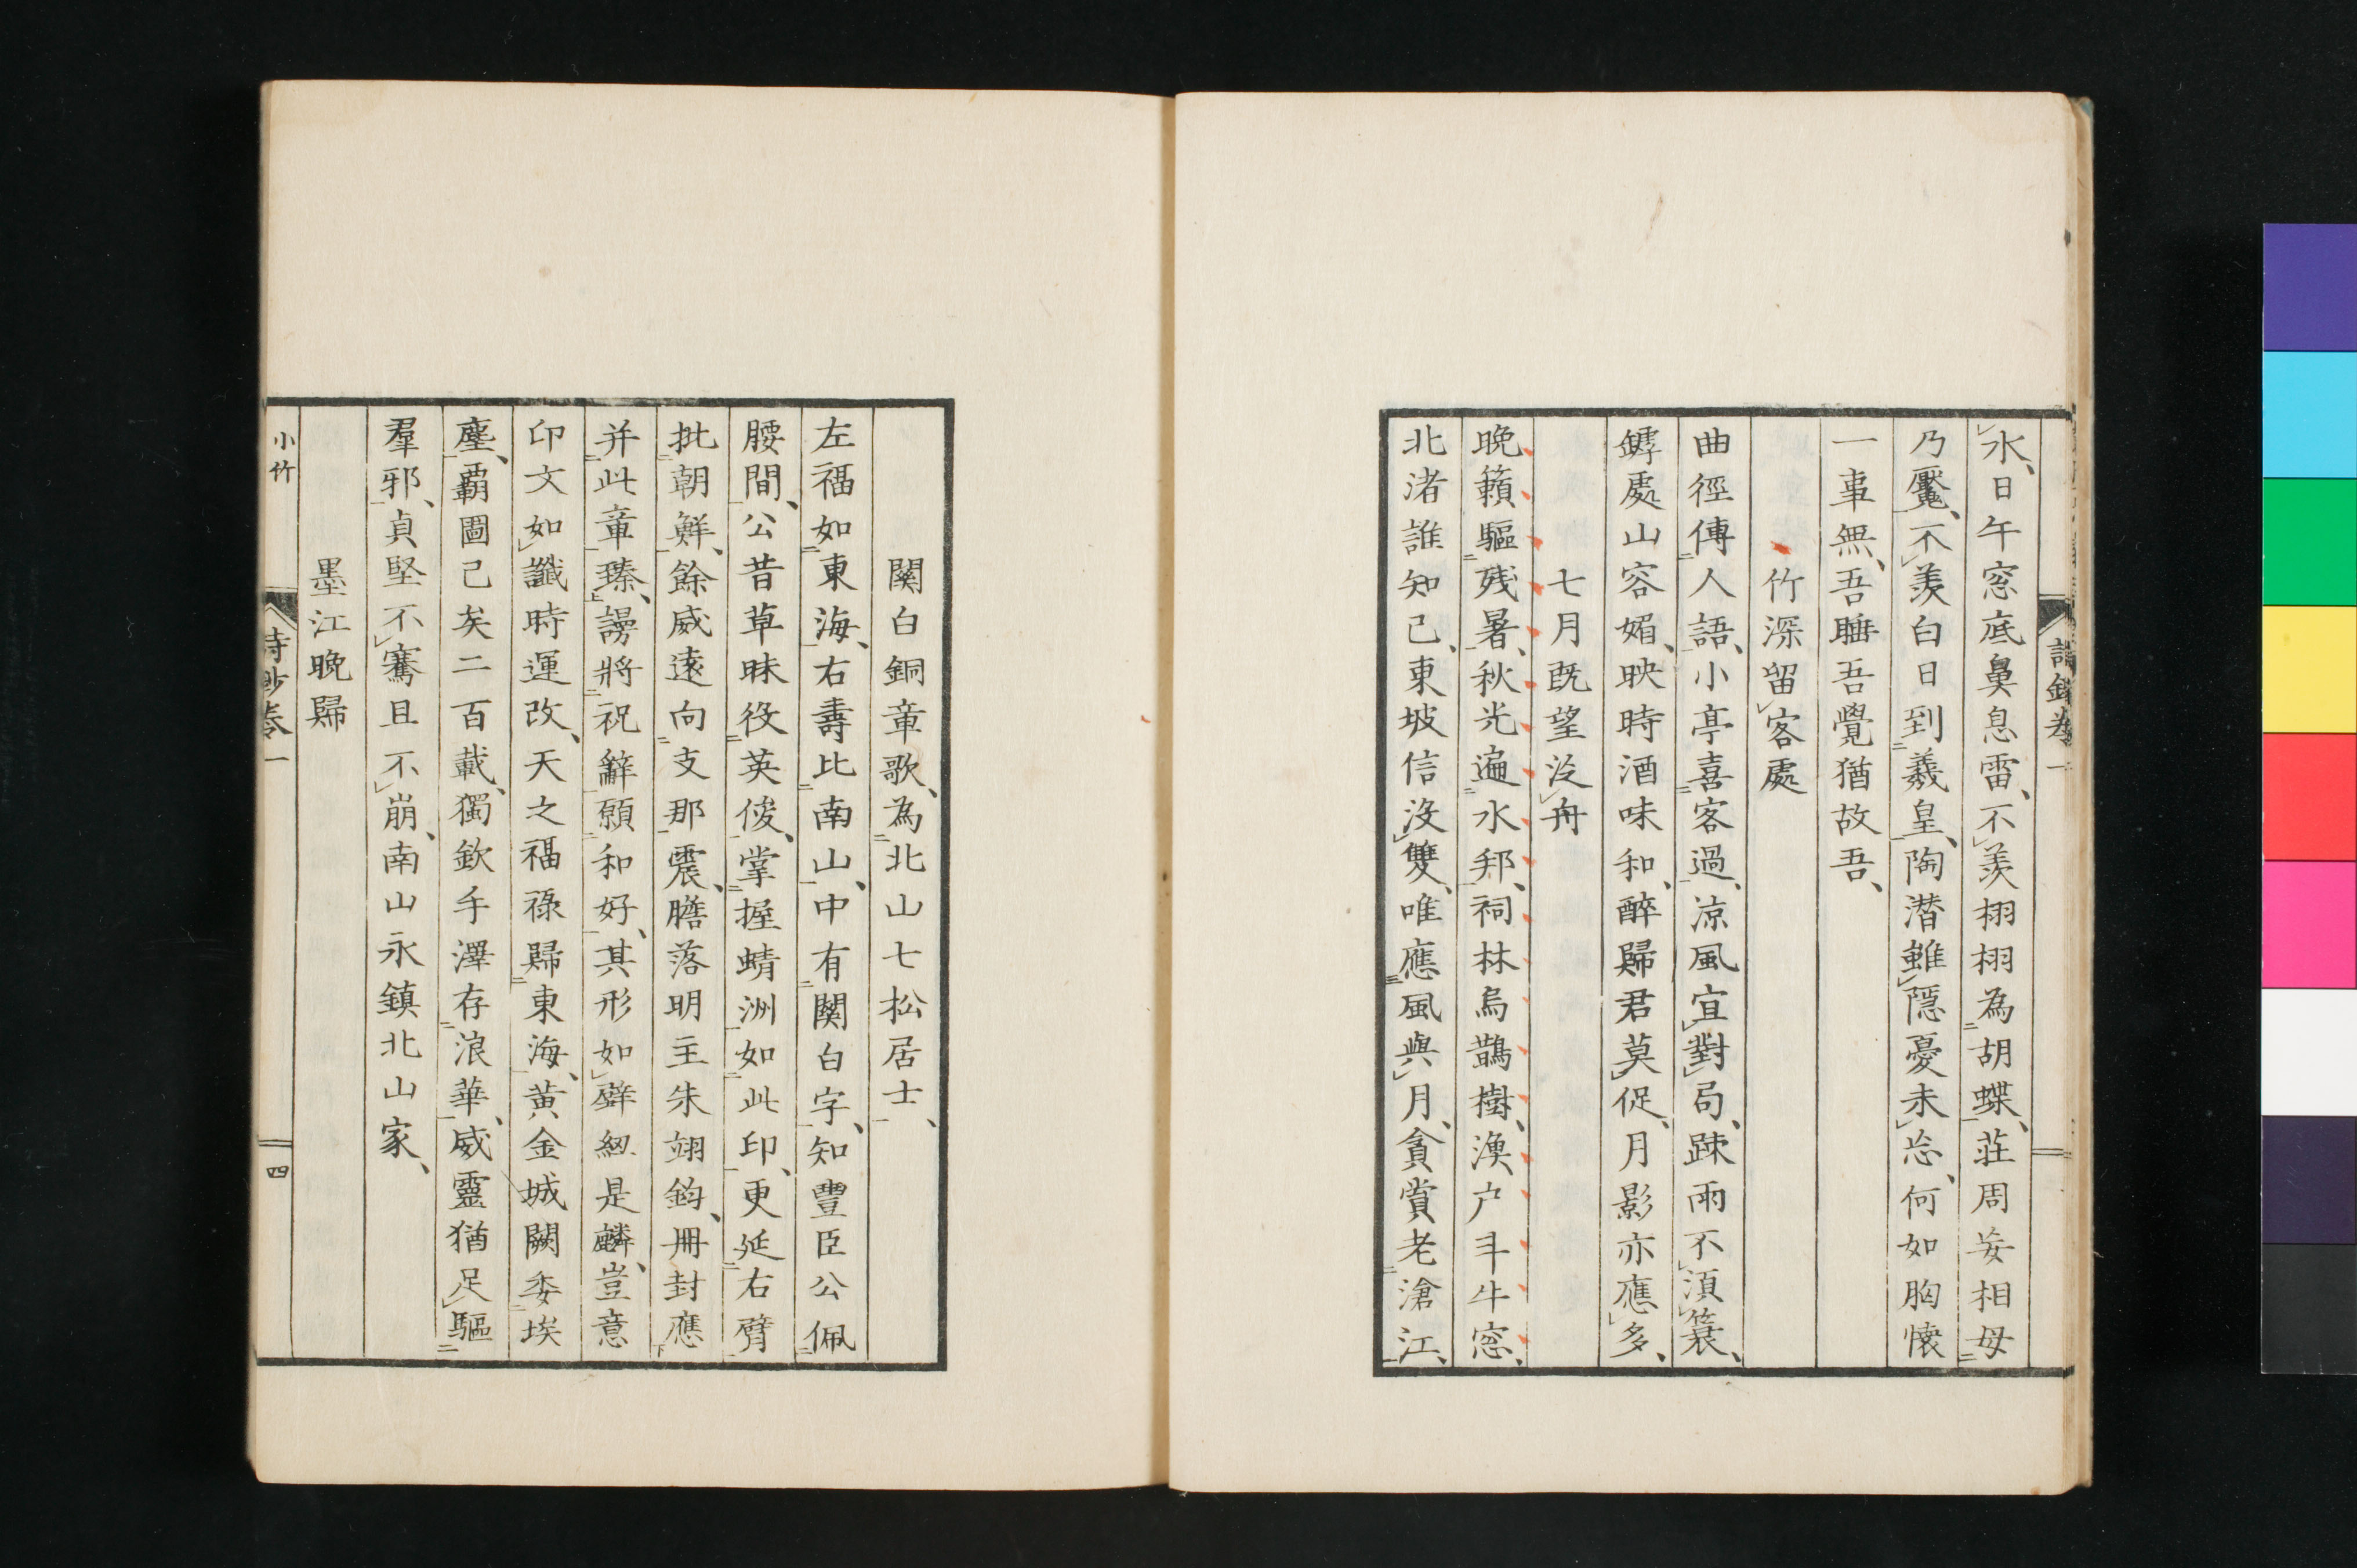 水、日午窓底鼻息雷、不羨栩栩為胡蝶、莊周妄相母
乃魘、不羨白日到羲皇、陶潛雖隱憂未忘、何如胸懷
一事無、吾睡吾覺猶故吾、
竹深留客處
曲徑傳人語、小亭喜客過、凉風宜對局、踈雨不湏簑、
罅處山容媚、映時酒味和、醉歸君莫促、月影亦應多、
七月既望泛舟
晩籟驅残暑、秋光遍水郷、祠林烏鵲樹、漁户斗牛窓、
北渚誰知己、東坡信没雙、唯應風與月、貪賞老滄江、
關白銅章歌、為北山七松居士、
左福如東海、右壽比南山、中有關白字、知豐臣公佩
腰間、公昔草昧役英俊、掌握蜻洲如此印、更延右臂
批朝鮮、餘威遠向支那震、膽落明主朱翊鈞、冊封應
并此章臻、謾將祝辭願和好、其形如璧紐是麟、豈意
印文如讖時運改、天之福祿歸東海、黄金城闕委埃
塵、覇圖已矣二百載、獨欽手澤存浪華、威靈猶足驅
羣邪、貞堅不騫且不崩、南山永鎮北山家、
墨江晩歸
小竹
詩鈔卷一
四